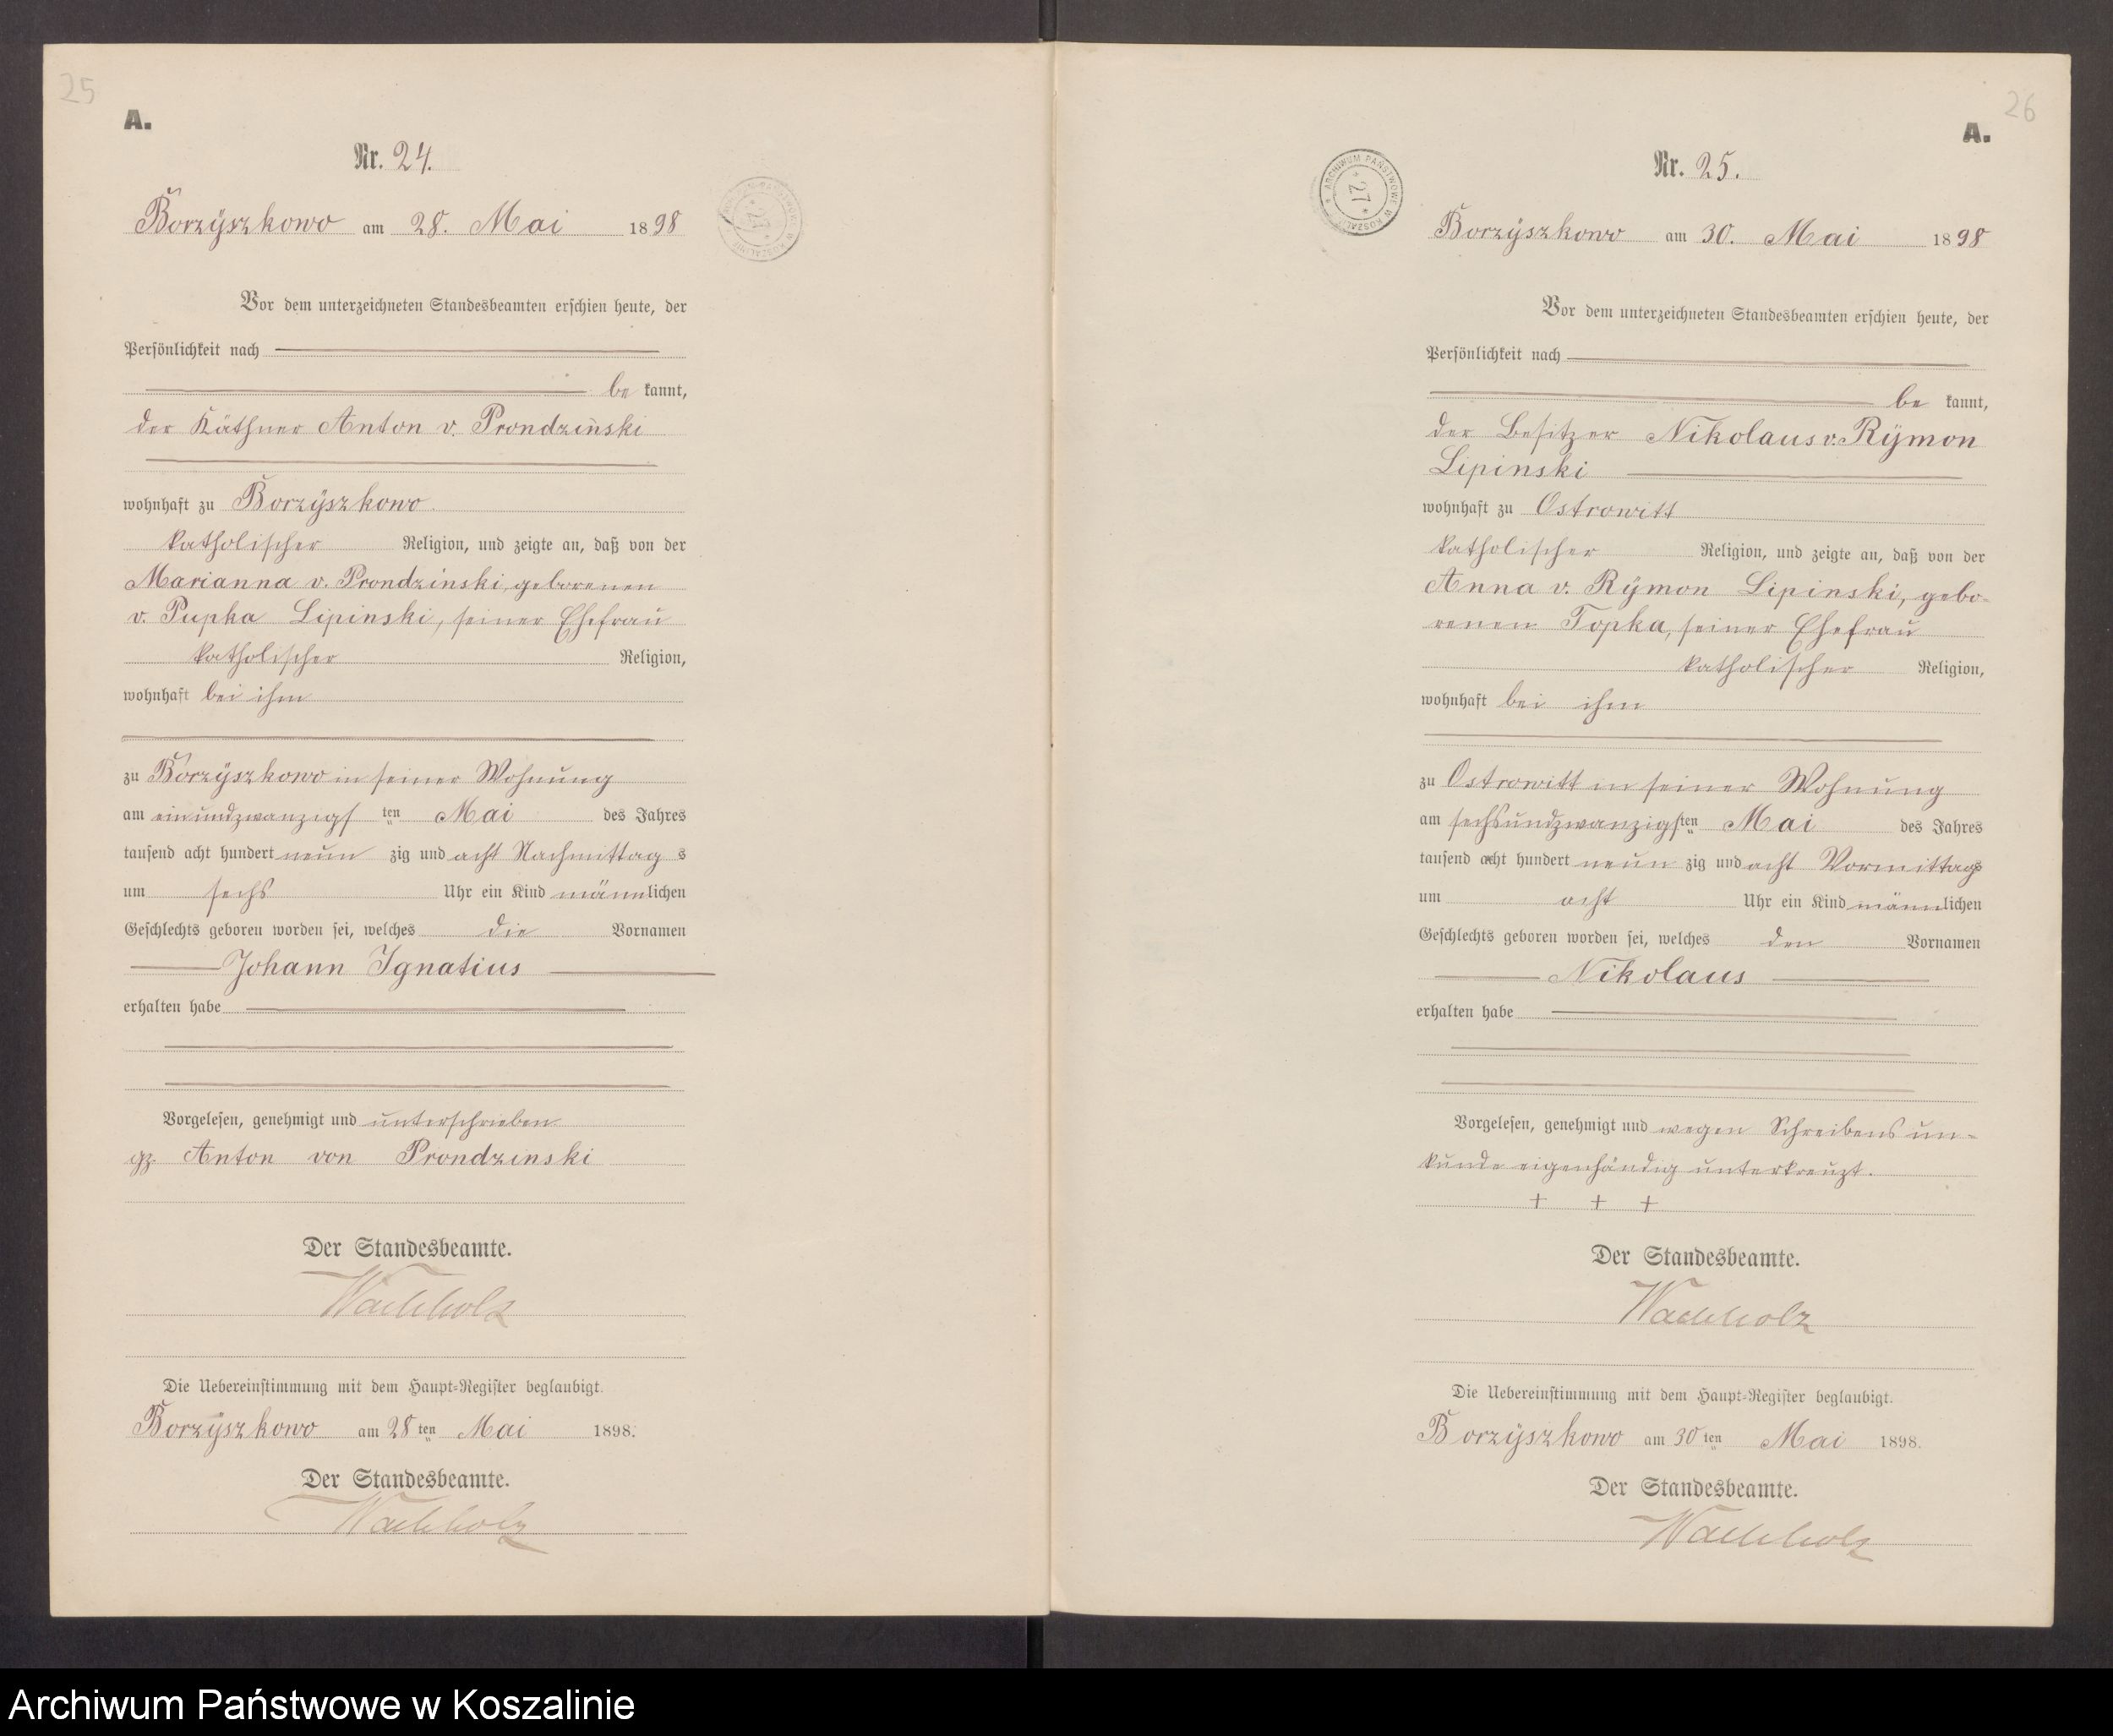 25
A.
Nr. 24.
Borzÿszkowo am 28. Mai 1898
Vor dem unterzeichneten Standesbeamten erschien heute, der
Persönlichkeit nach
be kannt,
der Käthner Anton v. Prondzinski
wohnhaft zu Borzÿszkowo
katholischer Religion, und zeigte an, daß von der
Marianna v. Prondzinski, geborenen
v. Pupka Lipinski, seiner Ehefrau
katholischer Religion,
wohnhaft bei ihm
zu Borzÿszkowo in seiner Wohnung
am einundzwanzigs ten Mai des Jahres
tausend acht hundert neun zig und acht Nachmittag s
um sechs Uhr ein Kind männlichen
Geschlechts geboren worden sei, welches die Vornamen
Johann Ignatius
erhalten habe
Vorgelesen, genehmigt und unterschrieben
gz. Anton von Prondzinski
Der Standesbeamte.
Wachholz
Die Uebereinstimmung mit dem Haupt-Register beglaubigt.
Borzÿszkowo am 28 ten Mai 1898.
Der Standesbeamte.
Wachholz
26
A.
ARCHIWUM PAŃSTWOWE W KOSZALINIE
27
Nr. 25.
Borzÿszkowo am 30. Mai 1898
Vor dem unterzeichneten Standesbeamten erschien heute, der
Persönlichkeit nach
be kannt,
der Besitzer Nikolaus v. Rÿmon
Lipinski
wohnhaft zu Ostrowitt
katholischer Religion, und zeigte an, daß von der
Anna v. Rÿmon Lipinski, gebo-
renen Topka, seiner Ehefrau
katholischer Religion,
wohnhaft bei ihm
zu Ostrowitt in seiner Wohnung
am sechsundzwanzigsten Mai des Jahres
tausend acht hundert neun zig und acht Vormittags
um acht Uhr ein Kind männlichen
Geschlechts geboren worden sei, welches den Vornamen
Nikolaus
erhalten habe
Vorgelesen, genehmigt und wegen Schreibensun-
kunde eigenhändig unterkreuzt.
+ + +
Der Standesbeamte.
Wachholz
Die Uebereinstimmung mit dem Haupt-Register beglaubigt.
Borzÿszkowo am 30 ten Mai 1898.
Der Standesbeamte.
Wachholz
Archiwum Państwowe w Koszalinie